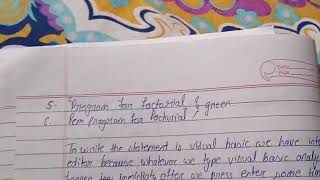 5. Program for factorial } green
6. Rem program for factorial
To write the statement is visual basic we have int
editor because whatever we type visual basic analy
after we press enter some